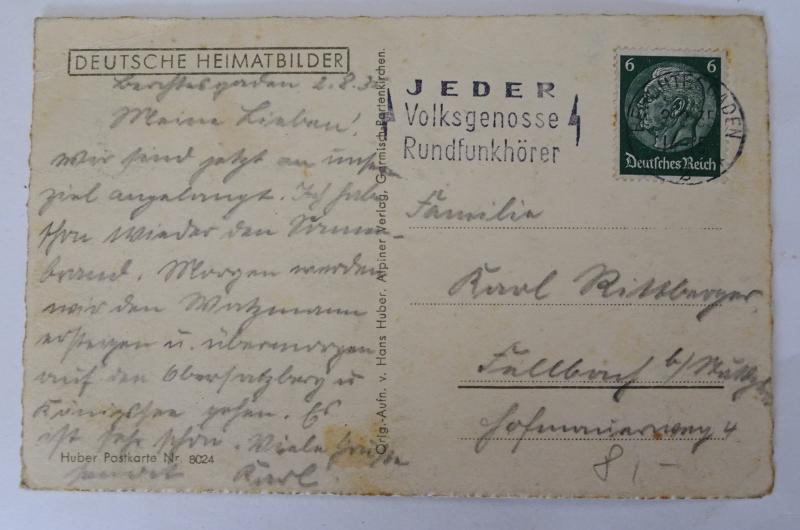 DEUTSCHE HEIMATBILDER
Berchtesgaden 2.8.3
Meine Lieben!
Wir sind jetzt an unser
Ziel angelangt. Ich habe
schon wieder den Sonnen-
brand. Morgen werden
wir den Watzmann
ersteigen u. übermorgen
auf den Obersalzberg u
Königssee gehen. Es
ist sehr schön. Viele Grüße
sendet Karl.
Huber Postkarte Nr. 8024
Orig.-Aufn. v. Hans Huber, Alpiner Verlag, Garmisch-Partenkirchen.
JEDER
Volksgenosse
Rundfunkhörer
6 6
Deutsches Reich
BERCHTESGADEN
Familie
Karl Rittberger
Fellbach b/Stuttgart
Hofmauerweg 4
8,-